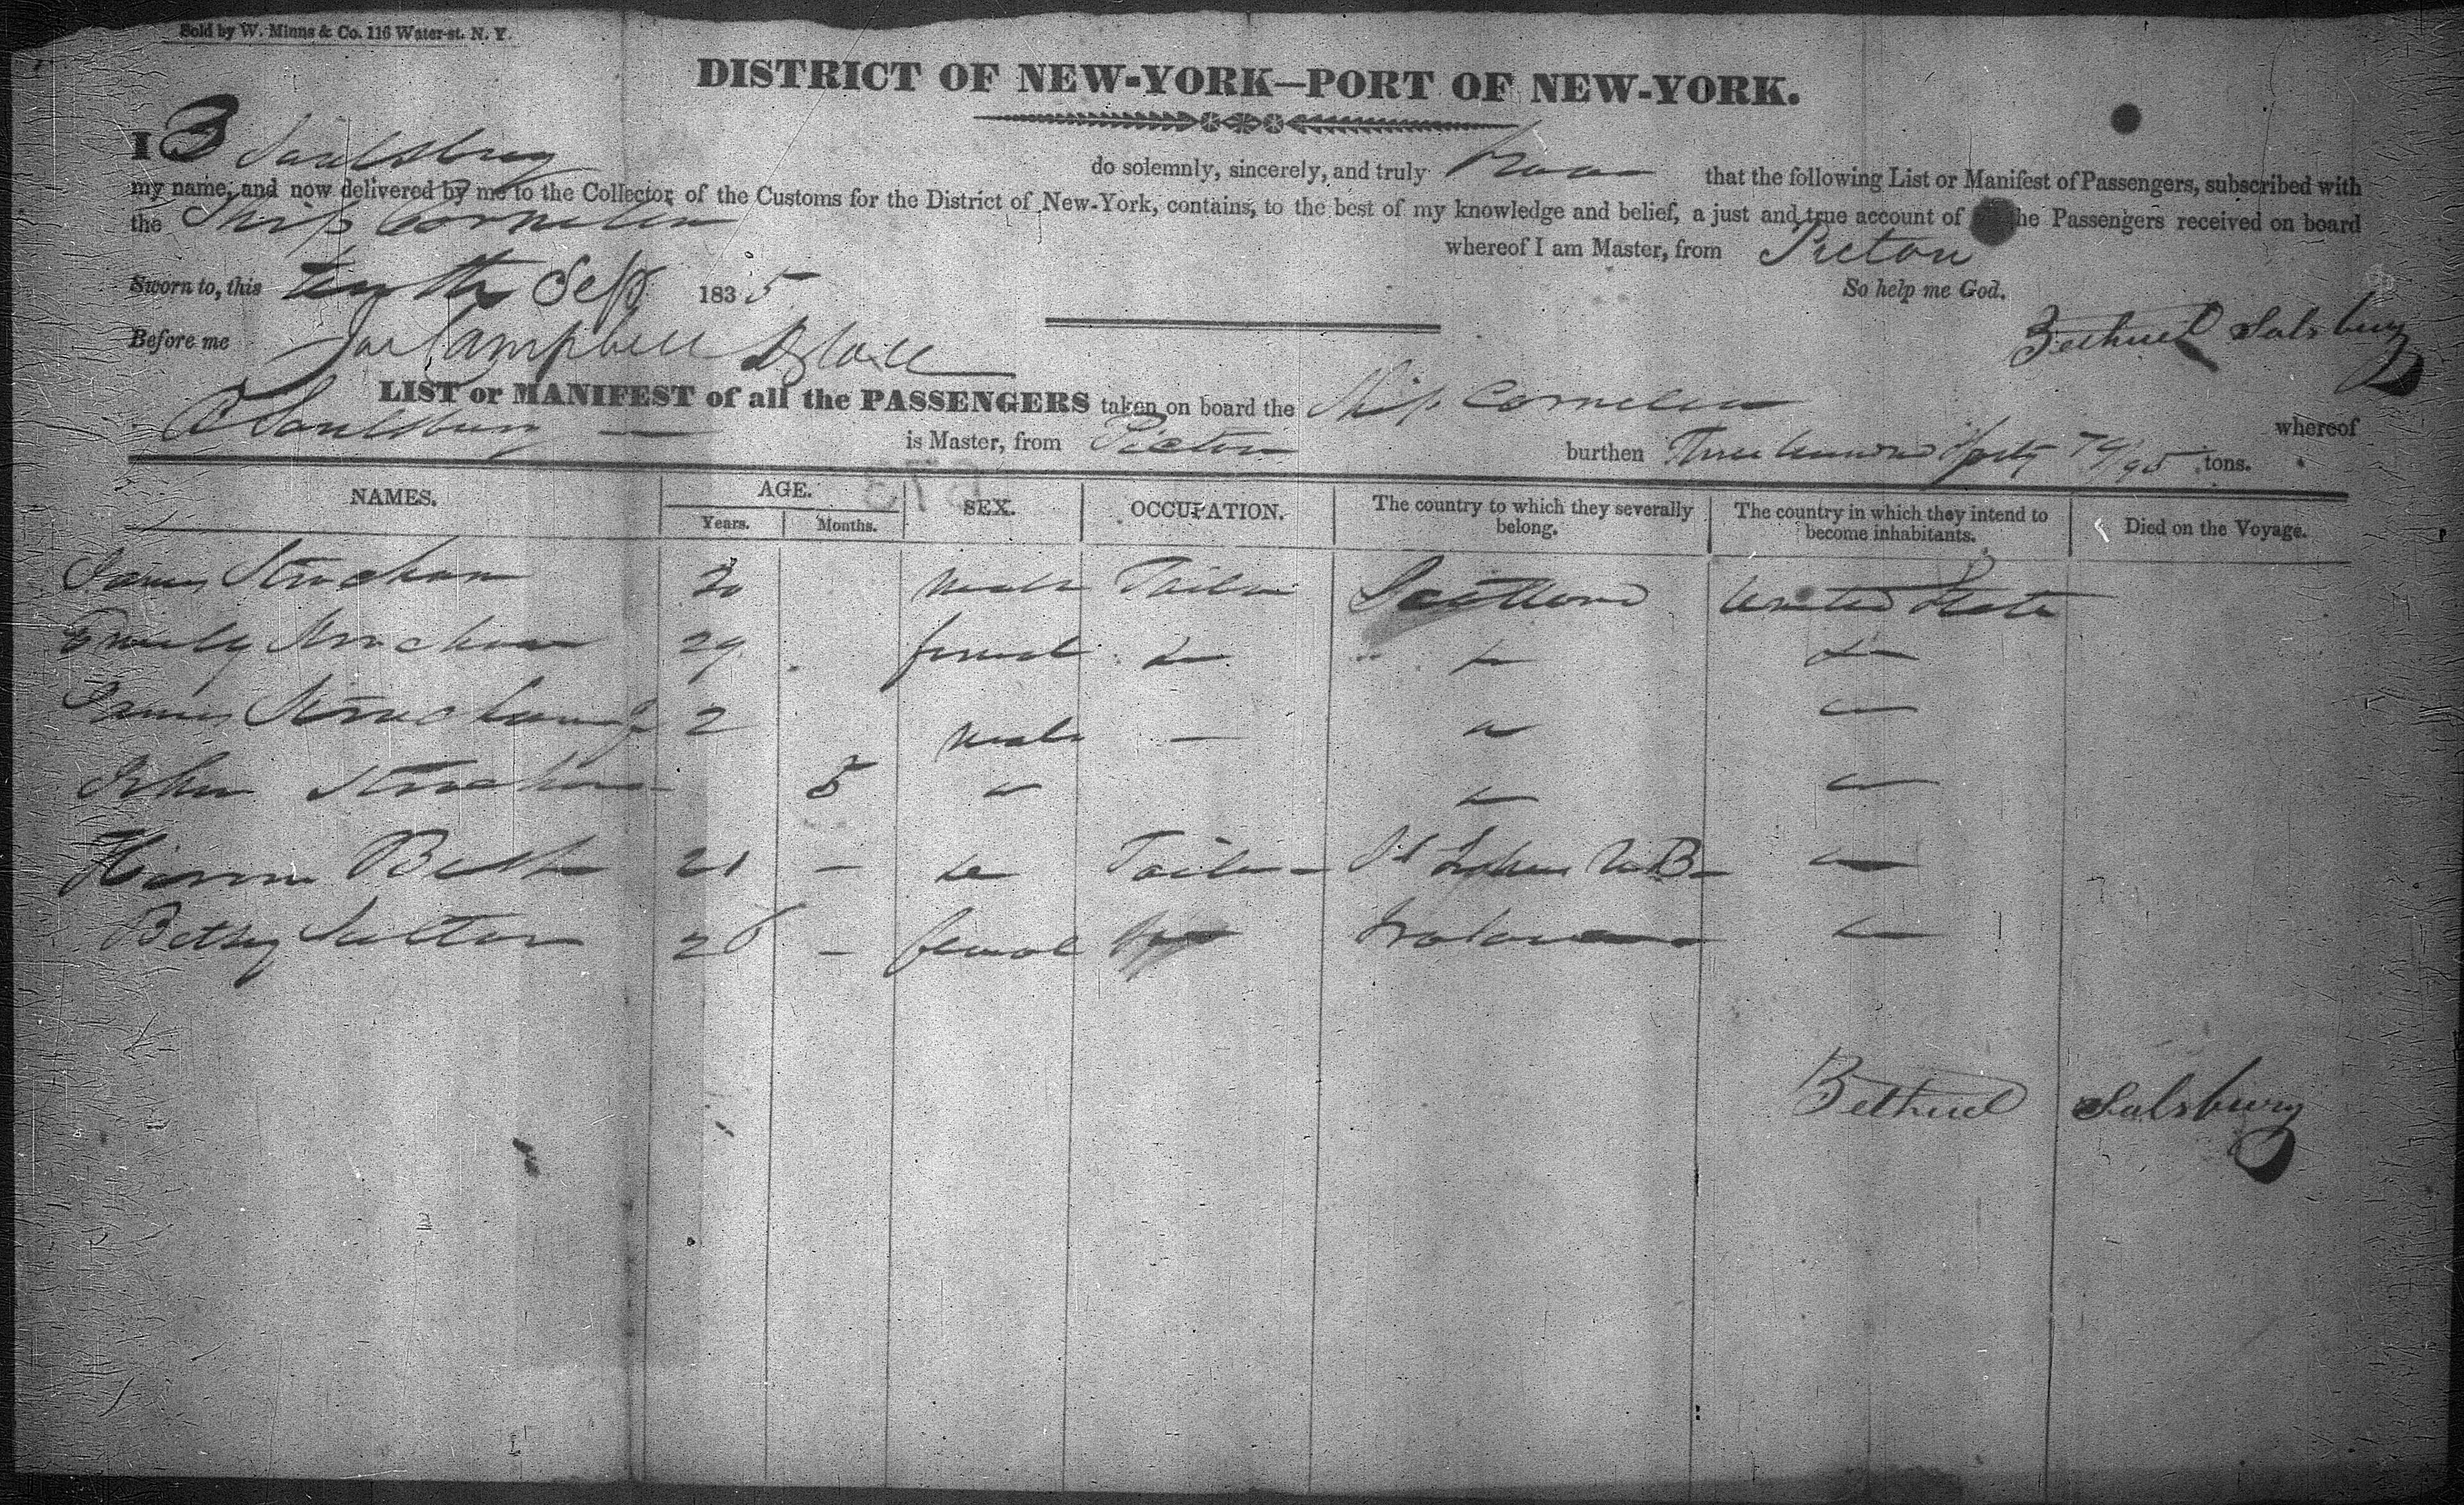 Sold by W. Minns & Co. 116 Water-st. N. Y.
DISTRICT OF NEW-YORK—PORT OF NEW-YORK.
I B Saulsbury do solemnly, sincerely, and truly swear that the following List or Manifest of Passengers, subscribed with
my name, and now delivered by me to the Collector of the Customs for the District of New-York, contains, to the best of my knowledge and belief, a just and true account of all the Passengers received on board
the Ship Cornelia whereof I am Master, from Pictou
Sworn to, this tenth Sep 1835 So help me God.
Before me Campbell Bethuel Salsbury
LIST or MANIFEST of all the PASSENGERS taken on board the Ship Cornelia whereof
B Saulsbury is Master, from Pictou burthen Three hundred forty 74/95 tons.
NAMES. AGE. SEX. OCCUPATION. The country to which they severally belong. The country in which they intend to become inhabitants. Died on the Voyage.
Years. Months.
James Strachan 30 male Tailor Scotland United State
Emily Strachan 29 female do do do
James Strachan Jr 2 male — " "
John Strachan 5 " " "
Hiram Betts 21 — do Tailor St Johns N.B. "
Betsy Sutton 26 — female Ireland "
Bethuel Salsbury